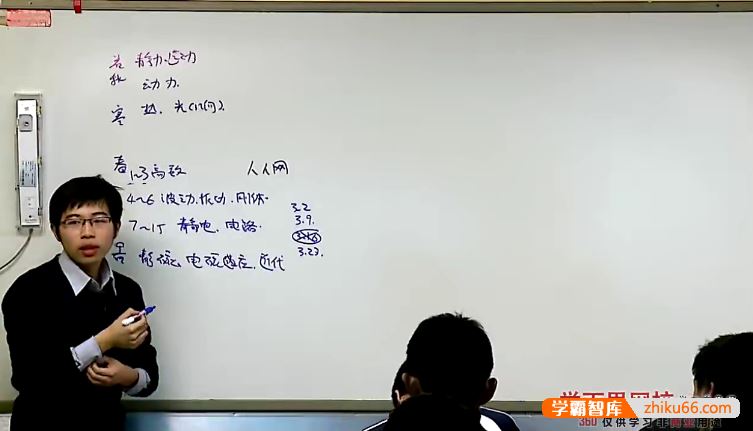 暑 静力.运动
秋 动力.
寒 热.光(几何).
春
1~3 高数
人人网
4~6 波动.振动.刚体.
7~15 静电.电路.
3.2
3.9.
3.23.
静磁.电磁感应.近代
学而思网校
学霸智库 zhiku66.com
360 仅供学习 非商业用途